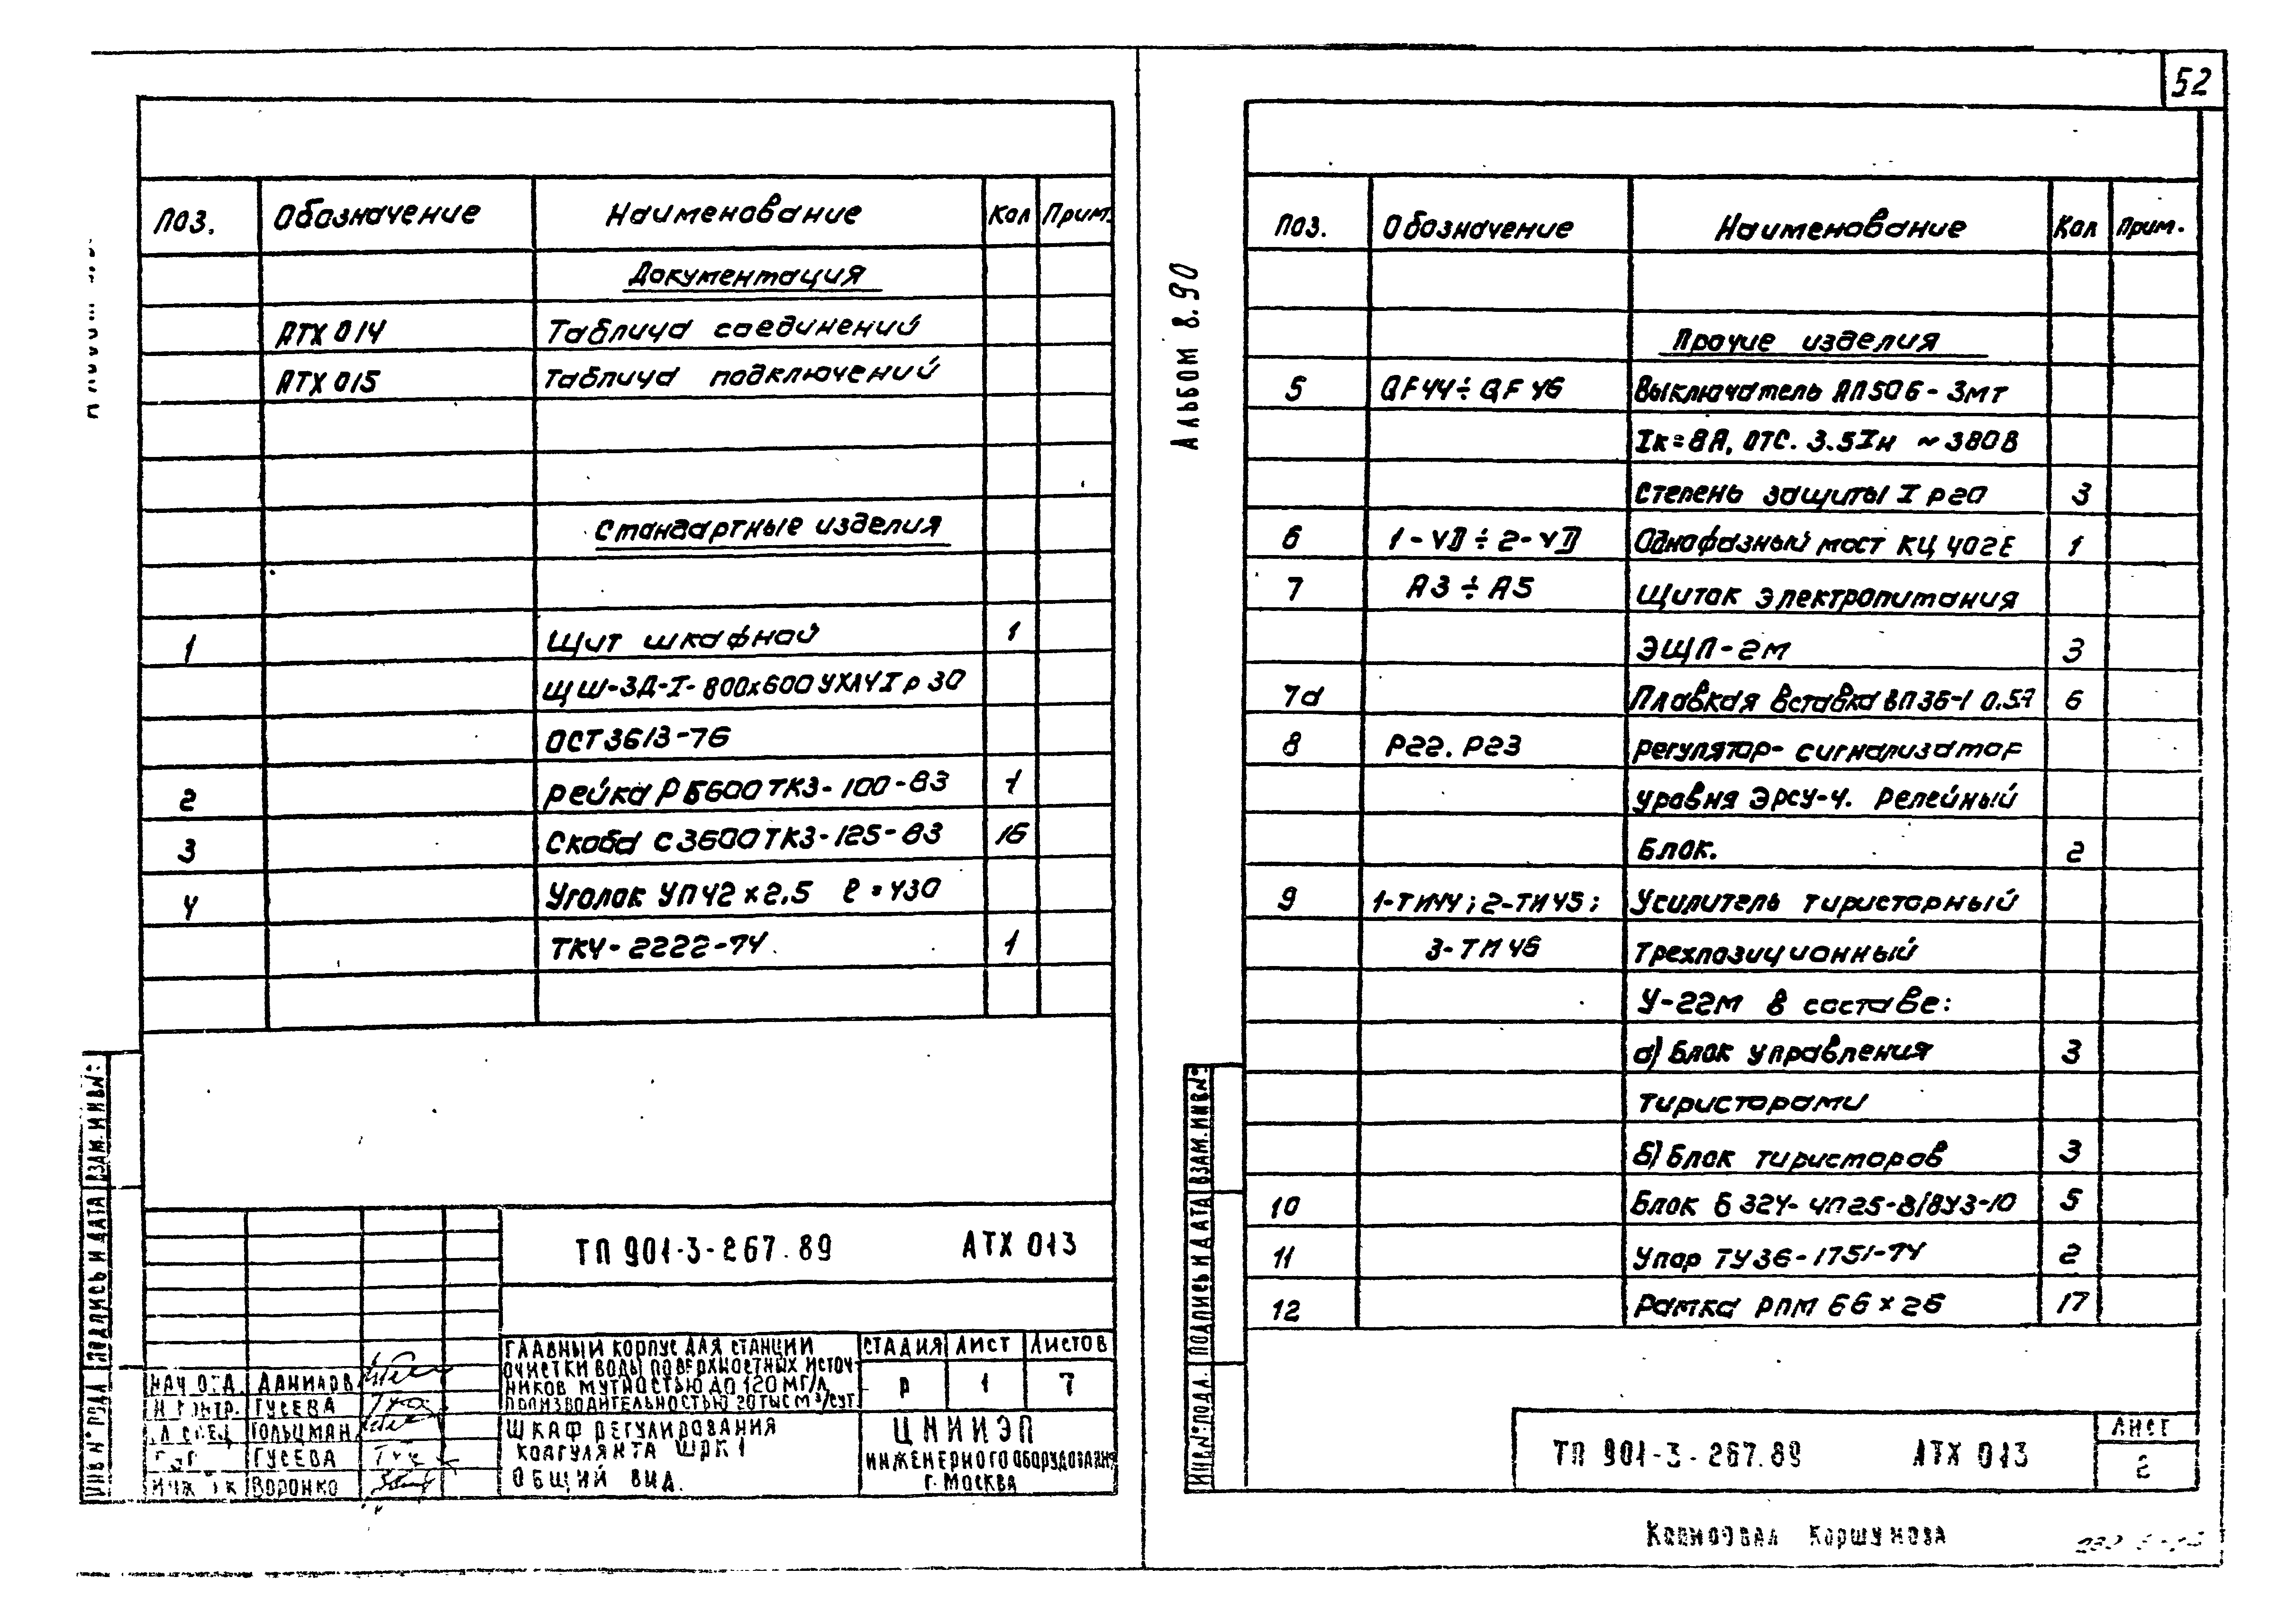 52
Поз. Обозначение Наименование Кол Прим.
Документация
АТХ 014 Таблица соединений
АТХ 015 Таблица подключений
Стандартные изделия
1 Щит шкафной 1
ЩШ-ЗД-I-800х600 УХЛ4 Iр 30
ОСТ 36 13-76
2 Рейка РБ600 ТК3-100-83 1
3 Скоба С3600 ТК3-125-83 16
4 Уголок УП42х2.5 ℓ=430
ТК4-2222-74 1
ТП 901-3-267.89 АТХ 013
ГЛАВНЫЙ КОРПУС ДЛЯ СТАНЦИИ
ОЧИСТКИ ВОДЫ ПОВЕРХНОСТНЫХ ИСТОЧ-
НИКОВ МУТНОСТЬЮ ДО 120 МГ/Л
ПРОИЗВОДИТЕЛЬНОСТЬЮ 20 ТЫС М³/СУТ
СТАДИЯ ЛИСТ ЛИСТОВ
Р 1 7
НАЧ ОТД. ДАНИЛОВ
Н КОНТР. ГУСЕВА
ГОЛЬЦМАН
ГУСЕВА
ВОРОНКО
ШКАФ РЕГУЛИРОВАНИЯ
КОАГУЛЯНТА ШРК 1
ОБЩИЙ ВИД.
ЦНИИЭП
ИНЖЕНЕРНОГО ОБОРУДОВАНИЯ
Г. МОСКВА
ИНВ № ПОДЛ ПОДПИСЬ И ДАТА ВЗАМ. ИНВ №:
АЛЬБОМ 8.90
Поз. Обозначение Наименование Кол Прим.
Прочие изделия
5 QF44÷QF46 Выключатель АП50Б-3МТ
Iк=8А, ОТС. 3.5Iн ~380В
Степень защиты Iр20 3
6 1-VD÷2-VD Однофазный мост КЦ 402Е 1
7 А3÷А5 Щиток электропитания
ЭЩП-2м 3
7а Плавкая вставка ВП3Б-1 0.5А 6
8 Р22. Р23 Регулятор-сигнализатор
уровня ЭРСУ-4. Релейный
блок. 2
9 1-ТИ44; 2-ТИ45; Усилитель тиристорный
3-ТИ46 трехпозиционный
У-22М в составе:
а) Блок управления 3
тиристорами
б) Блок тиристоров 3
10 Блок Б324-4П25-В/ВУ3-10 5
11 Упор ТУ36-1751-74 2
12 Рамка РПМ 66х26 17
ИНВ.№ ПОДЛ. ПОДПИСЬ И ДАТА ВЗАМ. ИНВ №:
ТП 901-3-267.89 АТХ 013
ЛИСТ
2
Копировал Коршунова